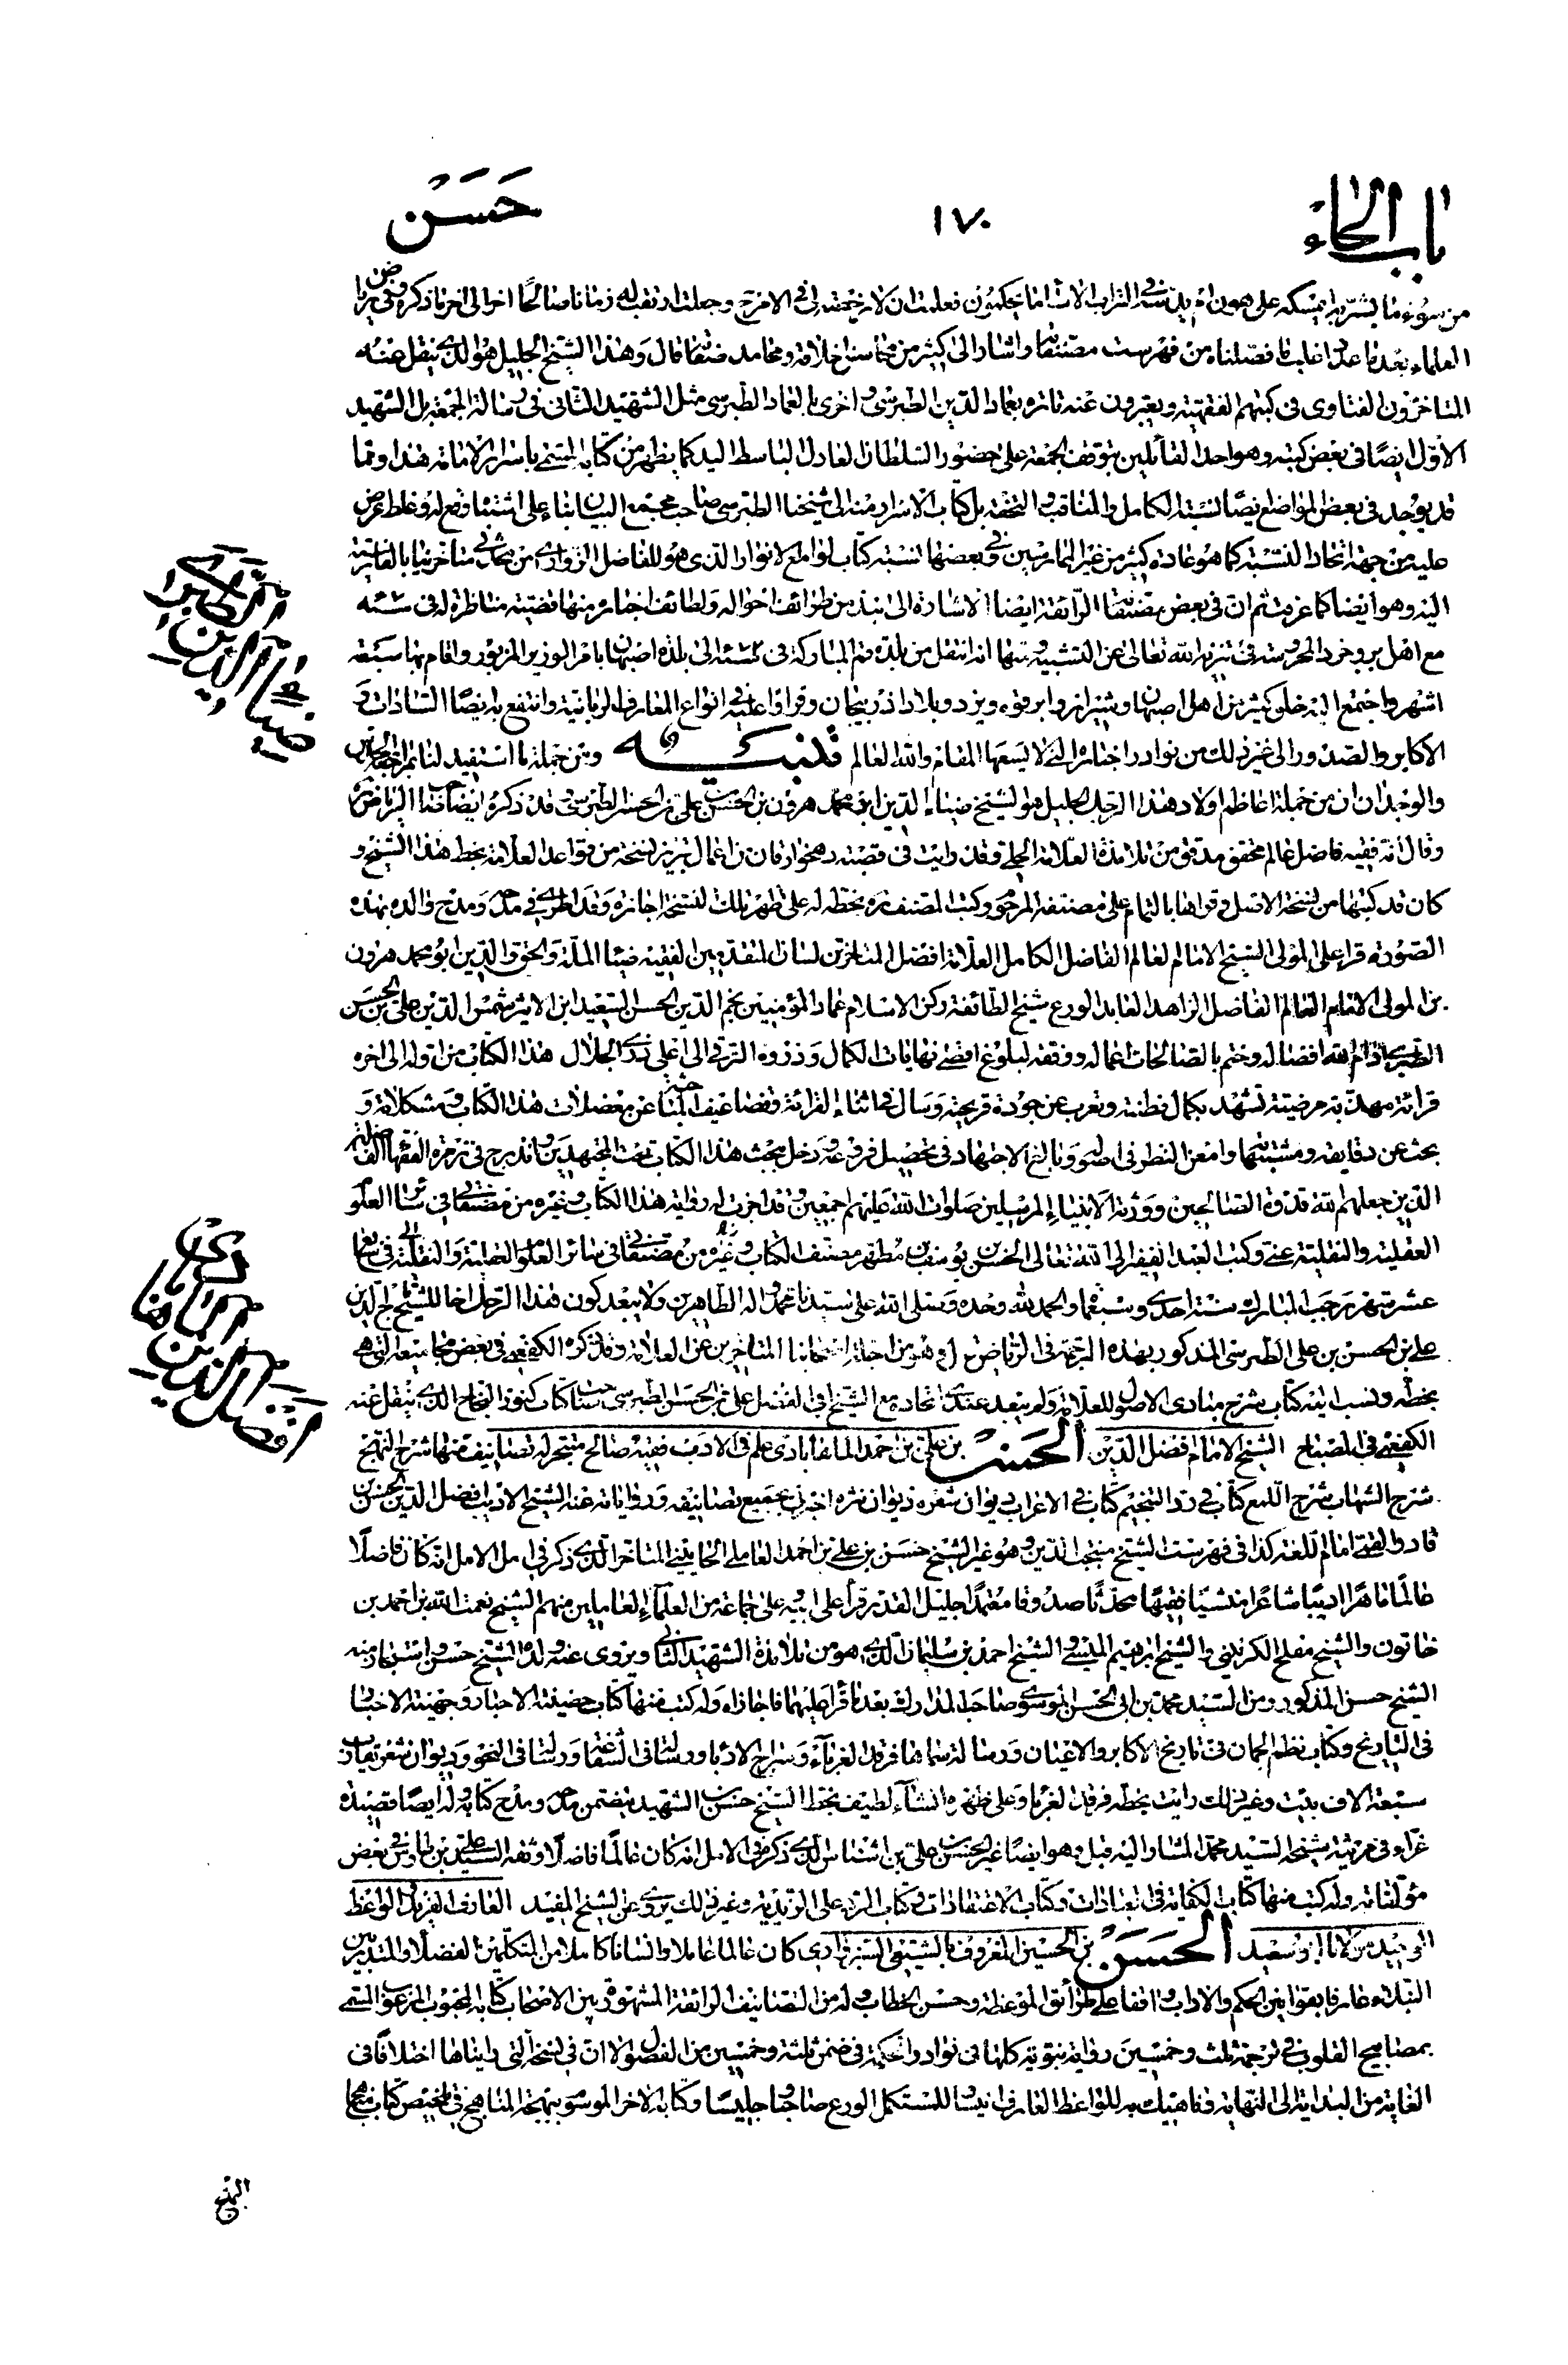 باب الحاء
١٧٠
حسن
من سوء ما بشر به ايمسكه على هون ام يدسه في التراب الا ساء ما يحكمون فعلمت ان لا رخصة لي في الاخرى وجعلت ارتقب له زمانا صالحا الى اخر ما ذكره وفي رياض
العلماء بعد ما عد اغلب ما فصلناه من فهرست مصنفاته واشار الى كثير من محاسن اخلاقه ومحامد صفاته قال وهذا الشيخ الجليل هو الذي ينقل عنه
المتاخرون الفتاوى في كتبهم الفقهية ويعبرون عنه تارة بعماد الدين الطبرسى واخرى بالعماد الطبرسى مثل الشهيد الثانى في رسالة الجمعة بل الشهيد
الاول ايضا في بعض كتبه وهو احد القائلين بتوقف الجمعة على حضور السلطان العادل الباسط اليد كما يظهر من كتابه المسمى باسرار الامامة هذا ومما
قد يوجد في بعض المواضع ايضا نسبة الكامل والمناقب والتحفة بل كتاب الاسرار منه الى شيخنا الطبرسى صاحب مجمع البيان بناء على اشتباه وقع له وغلط عرض
عليه من جهة اتحاد النسبة كما هو عادة كثير من غير الممارسين وفي بعضها نسبة كتاب لوامع الانوار الذى هو للفاضل الزوارى من متاخرينا بالفارسية
اليه وهو ايضا كما عرفت ثم ان في بعض مصنفاته الرائقة ايضا الاشارة الى نبذ من طرائف احواله ولطائف اخباره منها قضية مناظرة له في سنة
مع اهل بروجرد المحروسة في تنزيه الله تعالى عن التشبيه ومنها انه انتقل من بلدة قم المباركة في سنة الى بلدة اصبهان بامر الوزير المزبور واقام بها سبعة
اشهر واجتمع اليه خلق كثير من اهل اصبهان وشيراز وابرقوه ويزد وبلاد اذربيجان وقراوا عليه في انواع المعارف الربانية وانتفع به ايضا السادات و
الاكابر والصدور الى غير ذلك من نوادر اخباره التي لا يسعها المقام والله العالم تنبيه ومن جملة ما استفيد لنا
والوجدان ان من جملة اعاظم اولاد هذا الرجل الجليل هو الشيخ ضياء الدين ابو محمد هرون بن الحسن بن على بن الحسن الطبرسى وقد ذكره ايضا صاحب الرياض
وقال انه فقيه فاضل عالم محقق مدقق من تلامذة العلامة الحلي وقد رايت في قصبة دهخوارقان من اعمال تبريز نسخة من قواعد العلامة بخط هذا الشيخ و
كان قد كتبها من نسخة الاصل وقراها بالتمام على مصنفه المرحوم وكتب المصنف ره بخطه له على ظهر تلك النسخة اجازة وقد اطرى في مدحه ومدح والده بهذه
الصورة قرا على المولى الشيخ الامام العالم الفاضل الكامل العلامة افضل المتاخرين لسان المتقدمين الفقيه ضياء الملة والحق والدين ابو محمد هرون
بن المولى الامام العالم الفاضل الزاهد العابد الورع شيخ الطائفة ركن الاسلام عماد المؤمنين نجم الدين الحسن السعيد ابن الامير شمس الدين على بن الحسن
الطبرى ادام الله افضاله وختم بالصالحات اعماله ووفقه لبلوغ اقصى نهايات الكمال وذروة الترقى الى اعلى الجلال هذا الكتاب من اوله الى اخره
قرائة مهذبة مرضية تشهد بكمال فطنته وتعرب عن جودة قريحته وسال في اثناء القرائة وتضاعيف المباحثة عن معضلات هذا الكتاب ومشكلاته و
بحث عن دقايقه ومشتبهاتها وامعن النظر في اصوله وبالغ الاجتهاد في تحصيل فروعه ودخل ببحث هذا الكتاب تحت المجتهدين واندرج في زمرة الفقهاء الفاضلين
الذين جعلهم الله قدوة الصالحين وورثة الانبياء المرسلين صلوات الله عليهم اجمعين وقد اجزت له رواية هذا الكتاب وغيره من مصنفاتي في سائر العلوم
العقلية والنقلية عنى وكتب العبد الفقير الى الله تعالى الحسن بن يوسف بن مطهر مصنف الكتاب وغيره من مصنفاتى في سائر العلوم العقلية والنقلية في سابع
عشر شهر رجب المبارك سنة احدى وسبعمائة والحمد لله وحده وصلى الله على سيدنا محمد واله الطاهرين ولا يبعد كون هذا الرجل اخا للشيخ تاج الدين
علي بن الحسن بن على الطبرسى المذكور بهذه الترجمة في الرياض وهو من اجلة اصحابنا المتاخرين عن العلامة وقد ذكره الكفعمى في بعض مجاميعه التي هى
بخطه ونسب اليه كتاب شرح مبادى الاصول للعلامة ولم يبعد عندى اتحاده مع الشيخ ابي الفضل على بن الحسن الطبرسى صاحب كتاب كنوز النجاح الذي ينقل عنه
الكفعمى في المصباح الشيخ الامام افضل الدين الحسن بن على بن احمد الماهابادى علم في الادب فقيه صالح متبحر له تصانيف منها شرح النهج
شرح الشهاب شرح اللمع كتاب في رد التنجيم كتاب في الاعراب ديوان شعره ديوان نثره اخبرني بجميع تصانيفه ورواياته عنه الشيخ الاديب افضل الدين الحسن بن
قادار القمى امام اللغة كذا في فهرست الشيخ منتجب الدين وهو غير الشيخ حسن بن على بن احمد العاملى الحانينى المتاخر الذي ذكر في امل الامل انه كان فاضلا
عالما ماهرا اديبا شاعرا منشيا فقيها محدثا صدوقا معتمدا جليل القدر قرا على ابيه وعلى جماعة من العلماء العامليين منهم الشيخ نعمت الله بن احمد بن
خاتون والشيخ مفلح الكونيني والشيخ ابراهيم الميسي والشيخ احمد بن سليمان الذي هو من تلامذة الشهيد الثاني ويروى عنه ولده الشيخ حسن واستجاز منه
الشيخ حسن المذكور ومن السيد محمد بن ابى الحسن الموسوى صاحب المدارك بعد ما قرا عليهما فاجازاه وله كتب منها كتاب حقيبة الاخبار وجهينة الاخبار
في التاريخ وكتاب نظم الجمان في تاريخ الاكابر والاعيان ورسالة سماها فرقد الغرباء وسراج الادباء ورسالة في الشفاعة ورسالة في النحو وديوان شعر يقارب
سبعة الاف بيت وغير ذلك رايت بخطه فرقد الغرباء وعلى ظهره انشاء لطيف بخط الشيخ حسن بن الشهيد يتضمن مدحه ومدح كتابه وله ايضا قصيدة
غراء في مرثية شيخه السيد محمد المشار اليه قبل وهو ايضا غير الحسن بن على بن اشناس الذي ذكر في الامل انه كان عالما فاضلا وثقه السيد على بن طاوس في بعض
مؤلفاته وله كتب منها كتاب الكفاية في العبادات وكتاب الاعتقادات وكتاب الرد على الزيدية وغير ذلك يروى عن الشيخ المفيد العارف الفريد الواعظ
الوحيد مولانا ابو سعيد الحسن بن الحسين المعروف بالشيعى السبزوارى كان عالما عاملا وانسانا كاملا من المتكلمين الفضلاء والمتدينين
النبلاء عارفا بقوانين الحكم والاداب واقفا على طرائق الموعظة وحسن الخطاب وله من التصانيف الرائقة المشهورة بين الاصحاب كتابه المحبوب المرغوب المسمى
بمصابيح القلوب في ترجمة ثلث وخمسين رواية نبوية كلها في نوادر الحكمة في ضمن ثلثة وخمسين من الفصول الا ان في نسخه التي رايناها اختلافا في
الغاية من البداية الى النهاية وناهيك به للواعظ العارف انيسا وللمستكمل الورع صاحبا وجليسا وكتابه الاخر الموسوم ببهجة المناهج في تلخيص كتاب مباهج
المهج
ضياء الدين الطبرى
افضل الدين الماهابادى